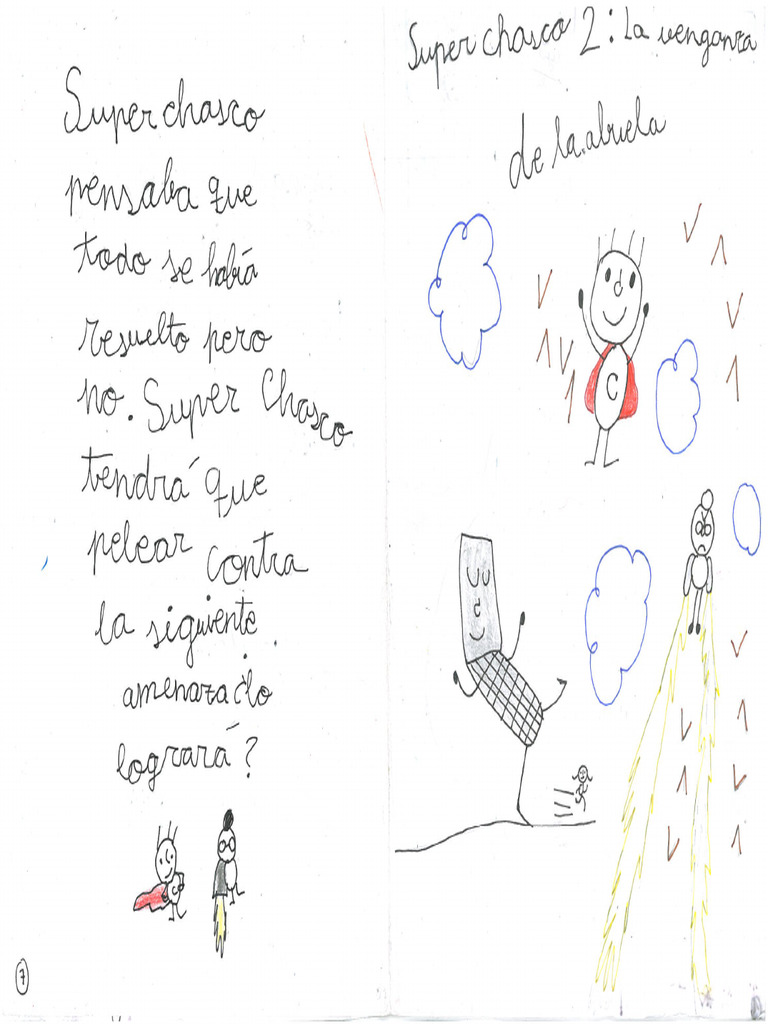 Super chasco
pensaba que
todo se había
resuelto pero
no. Super Chasco
tendrá que
pelear contra
la siguiente
amenaza ¿lo
logrará?
7
Super chasco 2: La venganza
de la abuela
C